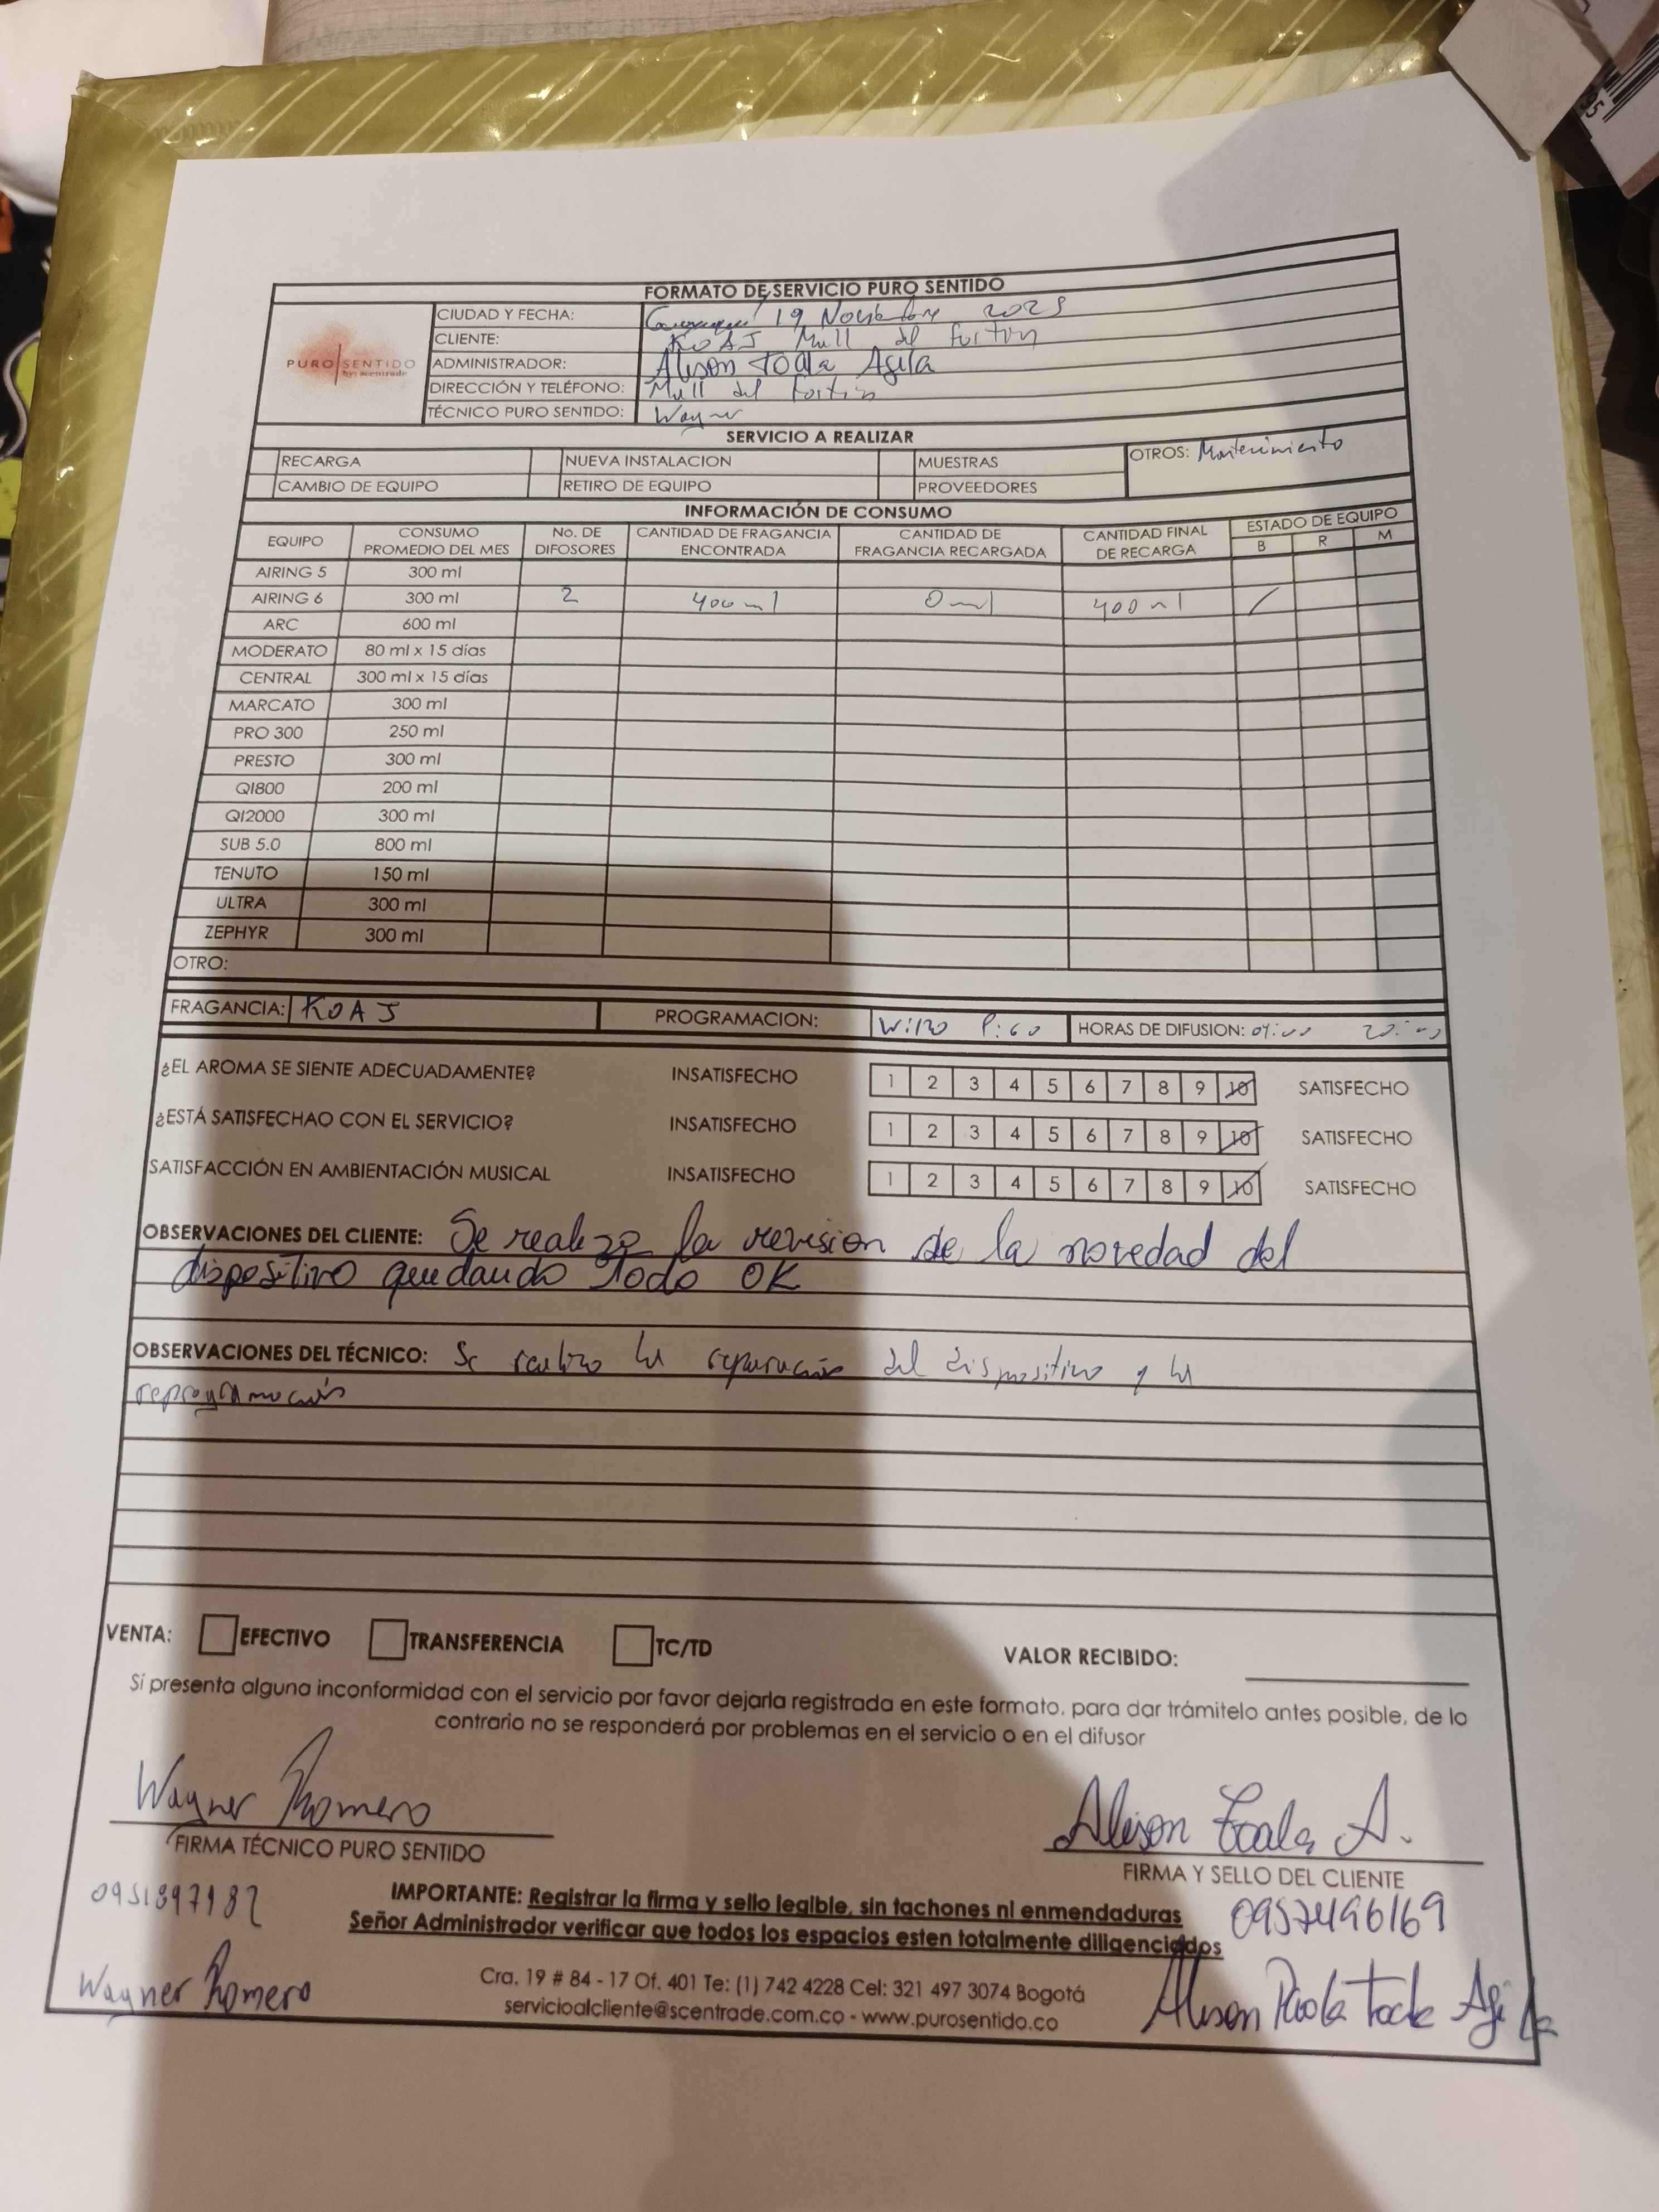 FORMATO DE SERVICIO PURO SENTIDO
PURO SENTIDO
by: scentrade
CIUDAD Y FECHA: 19 Noviembre 2025
CLIENTE: KOAJ Mall del Fortin
ADMINISTRADOR: Alison Toala Agila
DIRECCIÓN Y TELÉFONO: Mall del Fortin
TÉCNICO PURO SENTIDO: Wayner
SERVICIO A REALIZAR
RECARGA NUEVA INSTALACION MUESTRAS OTROS: Mantenimiento
CAMBIO DE EQUIPO RETIRO DE EQUIPO PROVEEDORES
INFORMACIÓN DE CONSUMO
EQUIPO CONSUMO PROMEDIO DEL MES No. DE DIFOSORES CANTIDAD DE FRAGANCIA ENCONTRADA CANTIDAD DE FRAGANCIA RECARGADA CANTIDAD FINAL DE RECARGA ESTADO DE EQUIPO
B R M
AIRING 5 300 ml
AIRING 6 300 ml 2 400 ml 0 ml 400 ml /
ARC 600 ml
MODERATO 80 ml x 15 días
CENTRAL 300 ml x 15 días
MARCATO 300 ml
PRO 300 250 ml
PRESTO 300 ml
QI800 200 ml
QI2000 300 ml
SUB 5.0 800 ml
TENUTO 150 ml
ULTRA 300 ml
ZEPHYR 300 ml
OTRO:
FRAGANCIA: KOAJ PROGRAMACION: W:120 P:60 HORAS DE DIFUSION:
¿EL AROMA SE SIENTE ADECUADAMENTE? INSATISFECHO 1 2 3 4 5 6 7 8 9 10 SATISFECHO
¿ESTÁ SATISFECHAO CON EL SERVICIO? INSATISFECHO 1 2 3 4 5 6 7 8 9 10 SATISFECHO
SATISFACCIÓN EN AMBIENTACIÓN MUSICAL INSATISFECHO 1 2 3 4 5 6 7 8 9 10 SATISFECHO
OBSERVACIONES DEL CLIENTE: Se realizo la revision de la novedad del
dispositivo quedando todo OK
OBSERVACIONES DEL TÉCNICO: Se realizo la reparación del dispositivo y la
reprogramación
VENTA: EFECTIVO TRANSFERENCIA TC/TD VALOR RECIBIDO:
Si presenta alguna inconformidad con el servicio por favor dejarla registrada en este formato, para dar trámitelo antes posible, de lo
contrario no se responderá por problemas en el servicio o en el difusor
Wayner Romero Alison Toala A.
FIRMA TÉCNICO PURO SENTIDO FIRMA Y SELLO DEL CLIENTE
0957496169
IMPORTANTE: Registrar la firma y sello legible, sin tachones ni enmendaduras
Señor Administrador verificar que todos los espacios esten totalmente diligenciados
Wayner Romero Alison Paola Toala Agila
Cra. 19 # 84 - 17 Of. 401 Te: (1) 742 4228 Cel: 321 497 3074 Bogotá
servicioalcliente@scentrade.com.co - www.purosentido.co